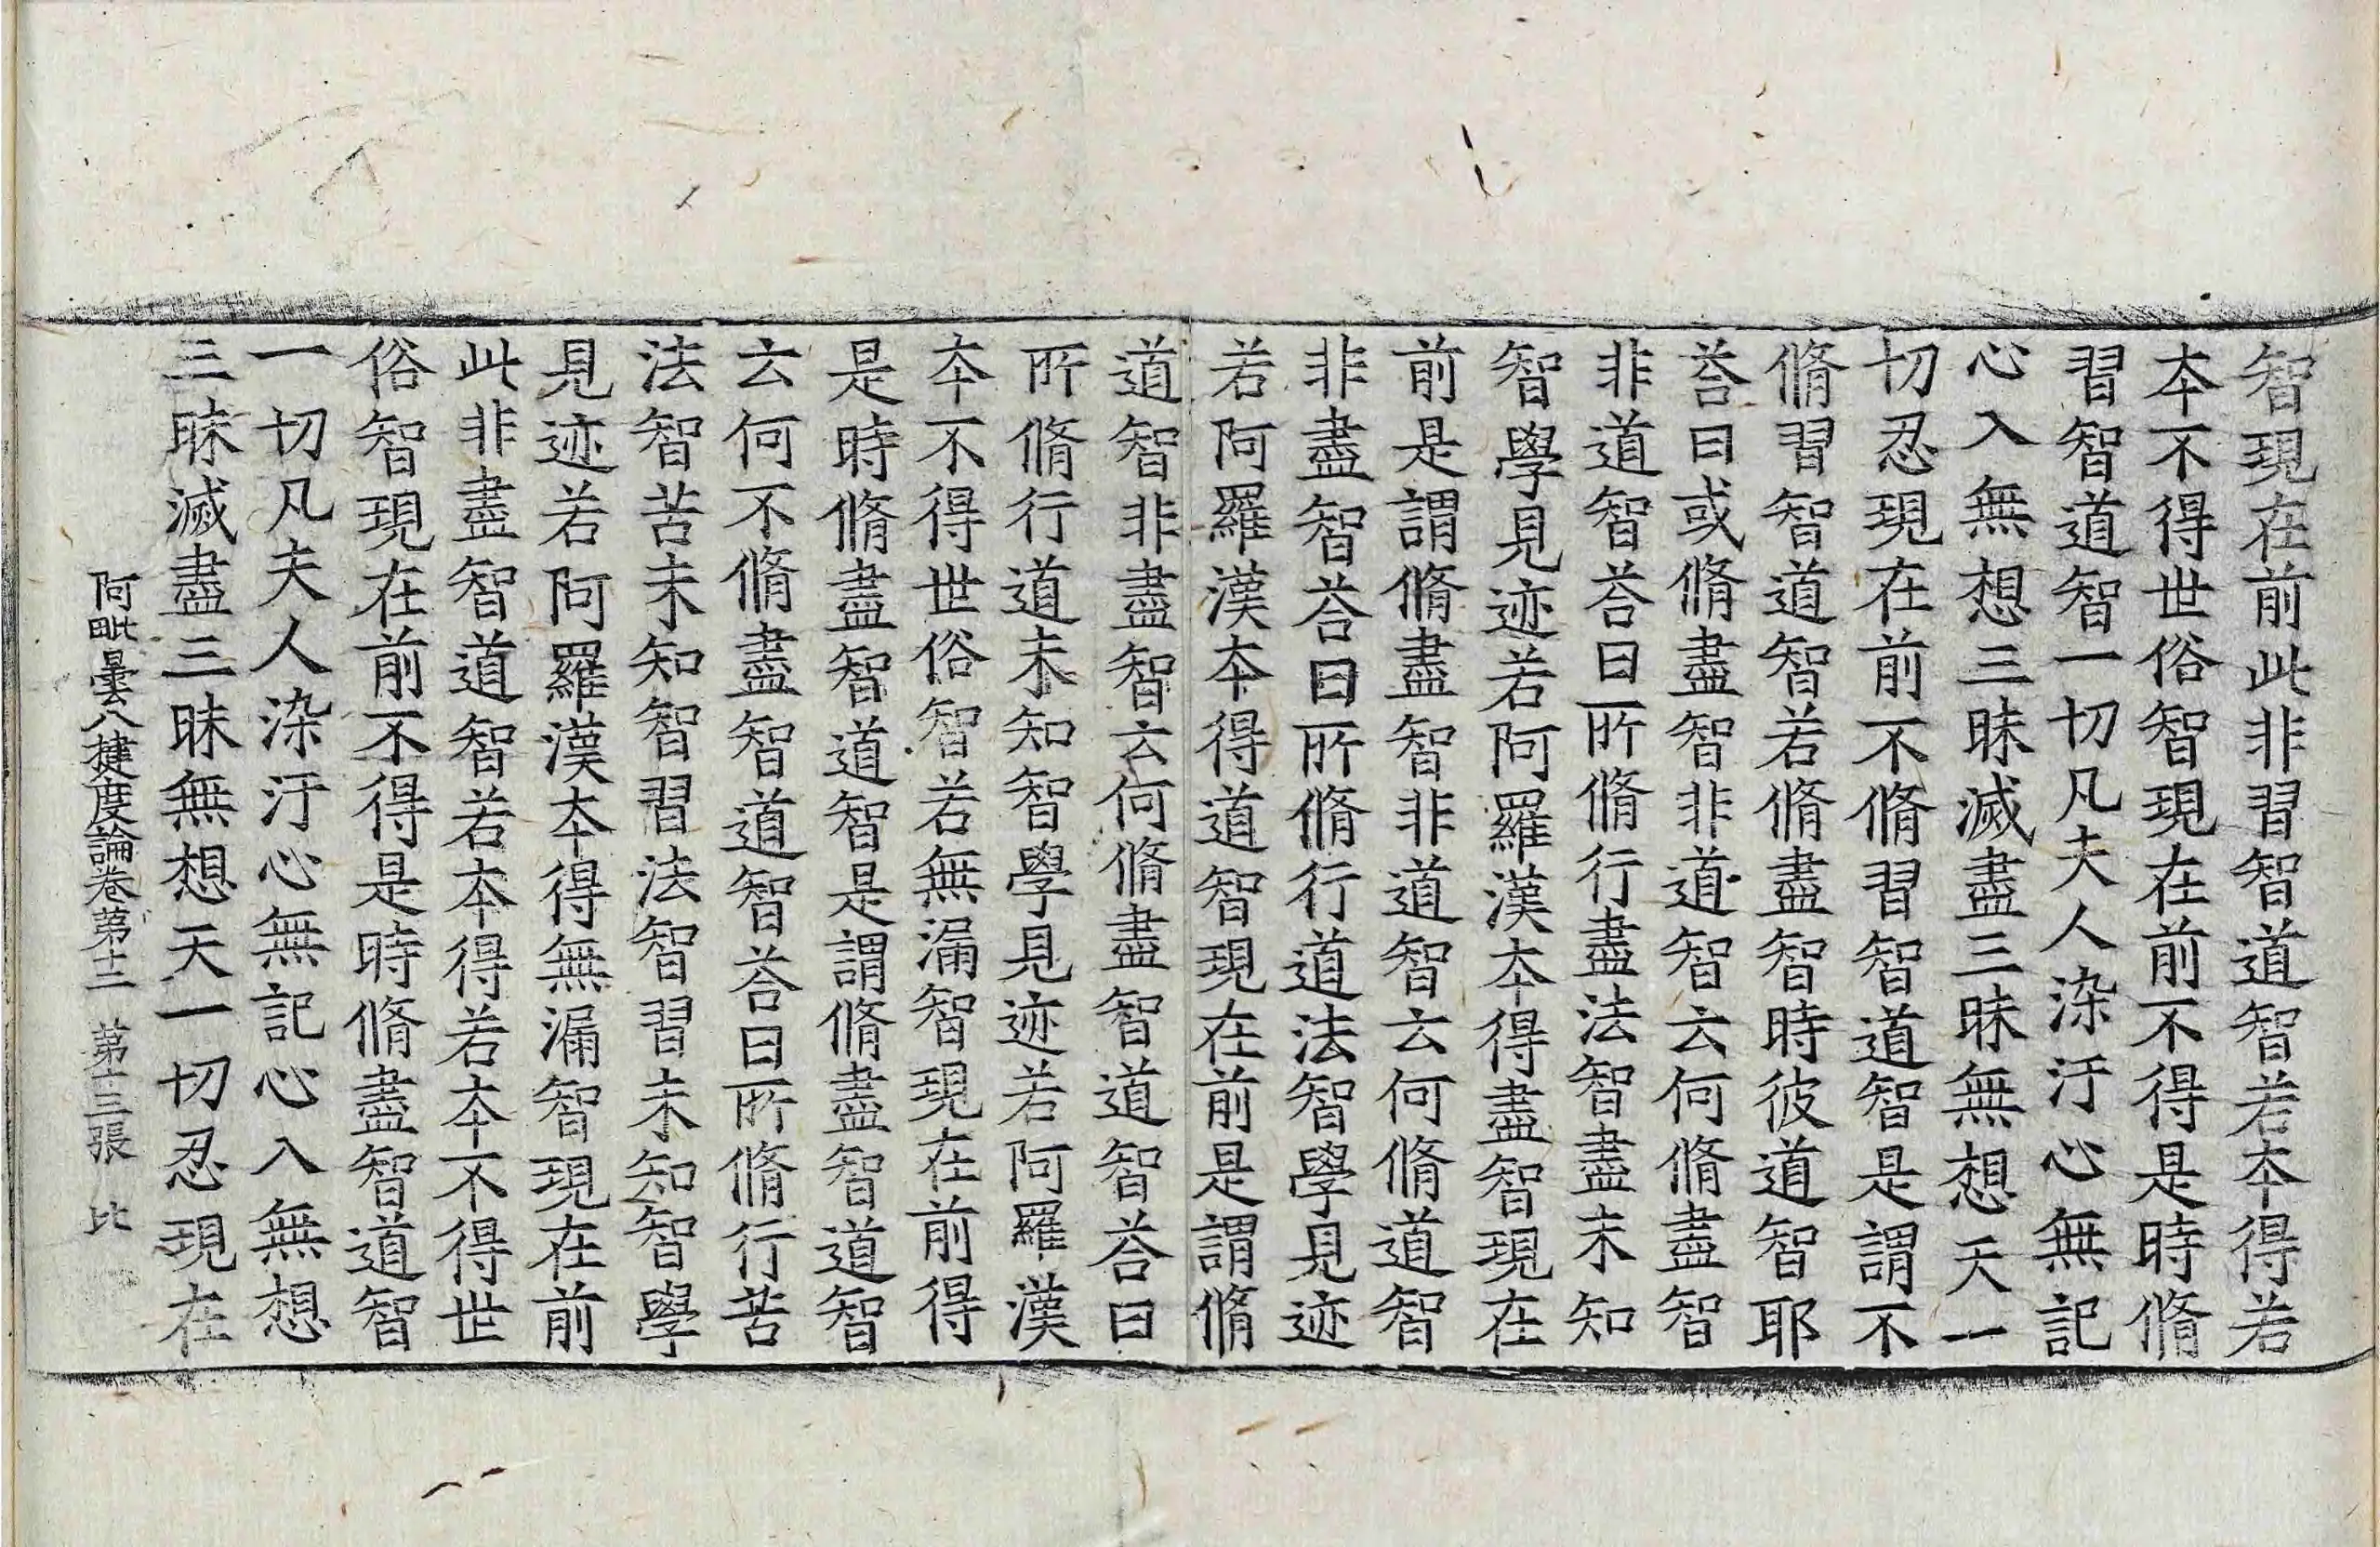 智現在前此非習智道智若本得若
本不得世俗智現在前不得是時脩
習智道智一切凡夫人染汙心無記
心入無想三昧滅盡三昧無想天一
切忍現在前不脩習智道智是謂不
脩習智道智若脩盡智時彼道智耶
荅曰或脩盡智非道智云何脩盡智
非道智荅曰所脩行盡法智盡未知
智學見迹若阿羅漢本得盡智現在
前是謂脩盡智非道智云何脩道智
非盡智荅曰所脩行道法智學見迹
若阿羅漢本得道智現在前是謂脩
道智非盡智云何脩盡智道智荅曰
所脩行道未知智學見迹若阿羅漢
本不得世俗智若無漏智現在前得
是時脩盡智道智是謂脩盡智道智
云何不脩盡智道智荅曰所脩行苦
法智苦未知智習法智習未知智學
見迹若阿羅漢本得無漏智現在前
此非盡智道智若本得若本不得世
俗智現在前不得是時脩盡智道智
一切凡夫人染汙心無記心入無想
三昧滅盡三昧無想天一切忍現在
阿毗曇八揵度論卷第十二 第十三張 比